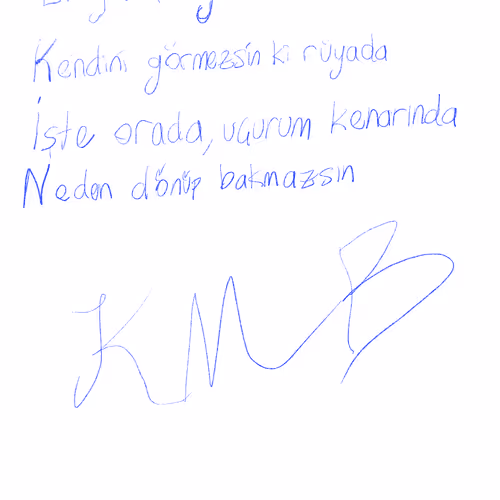 Kendini görmezsin ki rüyada
İşte orada, uçurum kenarında
Neden dönüp bakmazsın
KMB